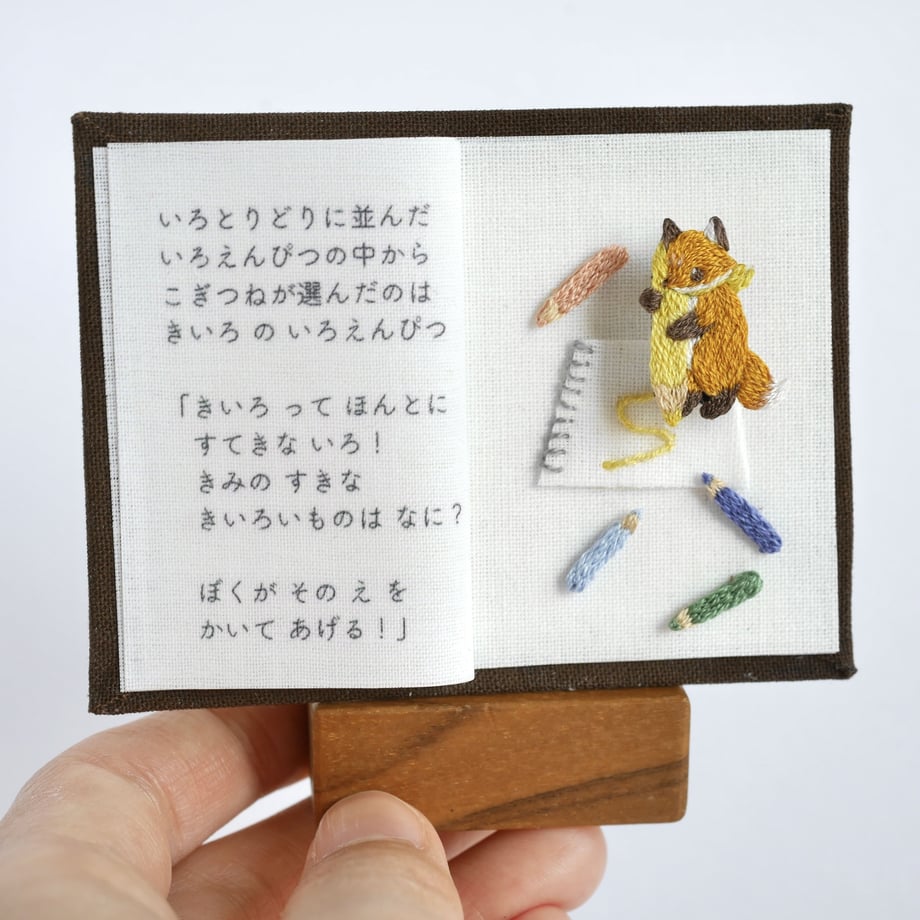 いろとりどりに並んだ
いろえんぴつの中から
こぎつねが選んだのは
きいろ の いろえんぴつ
「きいろ って ほんとに
すてきな いろ！
きみの すきな
きいろいものは なに？
ぼくが その え を
かいて あげる！」